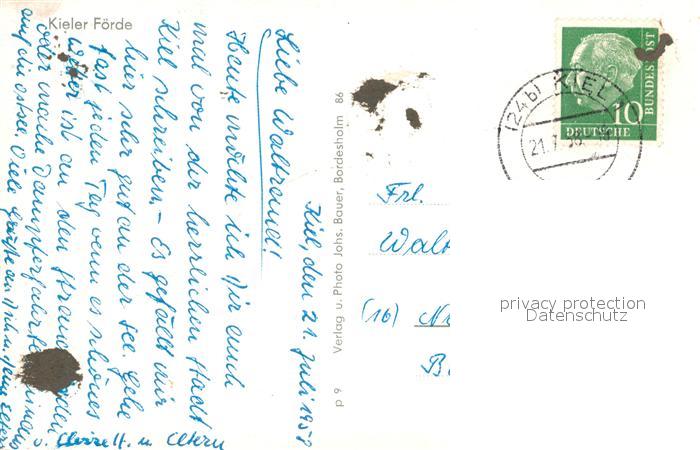 Kieler Förde
Kiel, den 21. Juli 1958
Liebe Waltraud!
Heute möchte ich Dir auch
mal von der herrlichen Stadt
Kiel schreiben. - Es gefällt mir
hier sehr gut an der See. Gehe
fast jeden Tag wenn es schönes
Wetter ist an den Strand baden
oder mache Dampferfahrten
auf die Ostsee. Viele Grüße an Dich u. Deine Eltern
u. Eltern
p 9 Verlag u. Photo Johs. Bauer, Bordesholm 86
KIEL
(24b)
21.7.58
10
DEUTSCHE
BUNDESPOST
Frl.
Walt
(16)
privacy protection
Datenschutz